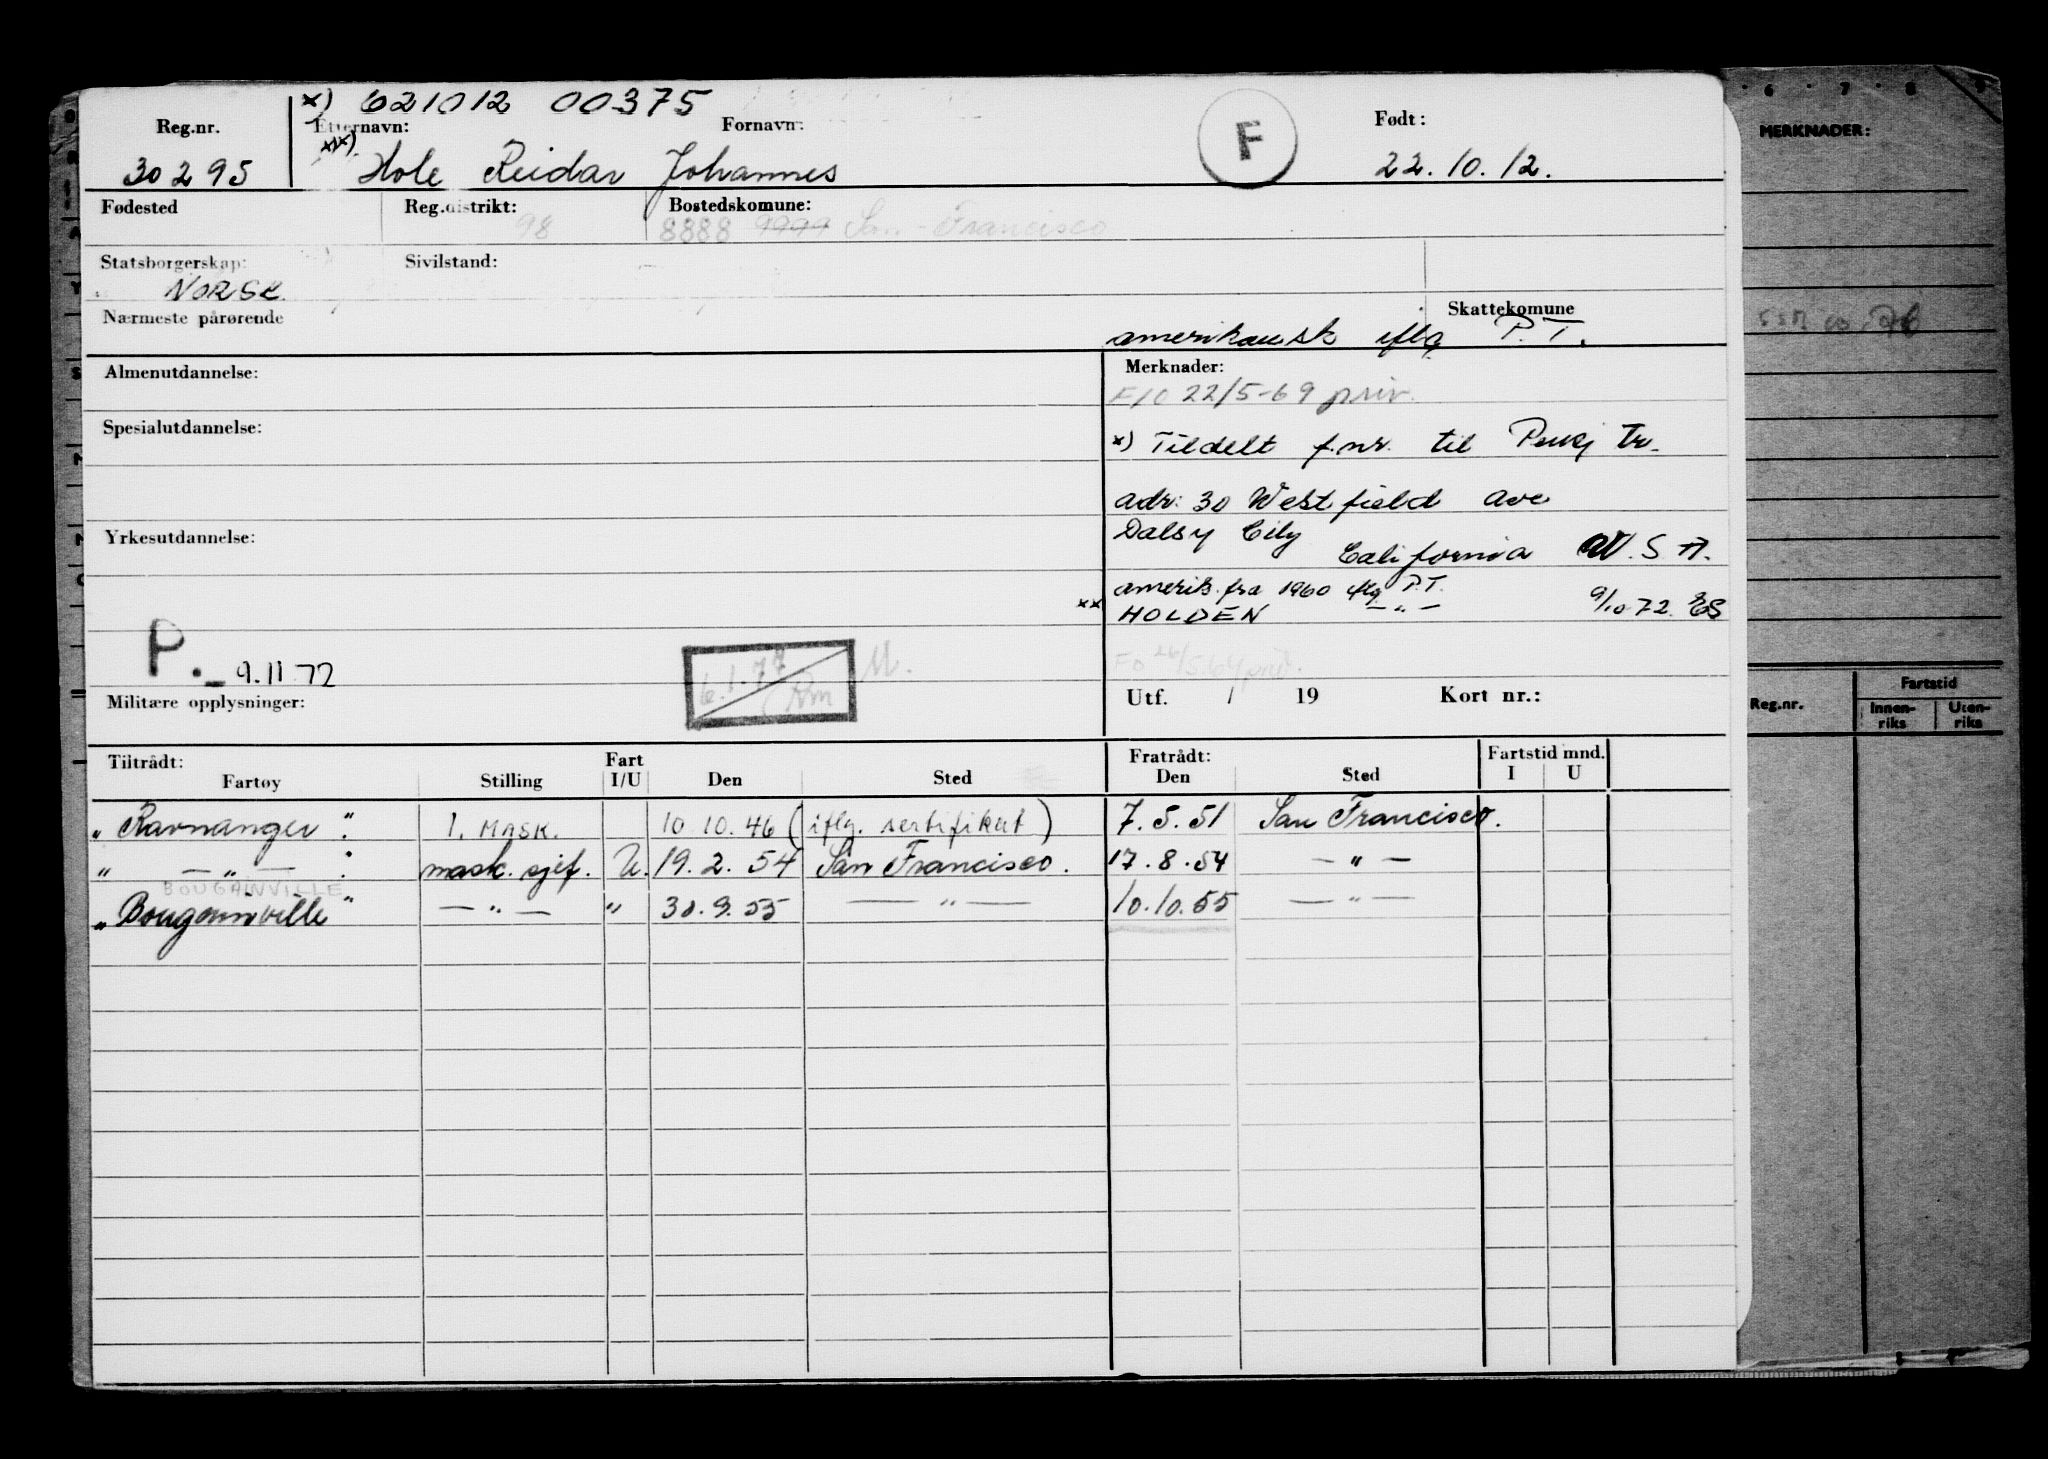 x) 621012 00375
Reg.nr. Etternavn: Fornavn: F Født:
30295 xx) Hole Reidar Johannes 22.10.12.
Fødested Reg.distrikt: Bostedskomune:
98 8888 9999 San-Francisco
Statsborgerskap: Sivilstand:
NORSK
Nærmeste pårørende Skattekomune
amerikansk iflg P.T.
Almenutdannelse: Merknader:
F/O 22/5-69 priv.
Spesialutdannelse:
x) Tildelt f.nr. til Penkj tr.
adr: 30 Westfield ave
Dalsy City
Yrkesutdannelse:
California U.S A.
amerik. fra 1960 iflg P.T.
xx HOLDEN — " — 9/10 72. ES
P. - 9.11 72 6.1.77 Rm M.
FO 26/5 64 priv.
Militære opplysninger: Utf. / 19 Kort nr.:
Tiltrådt: Fart Fratrådt: Fartstid mnd.
Fartøy Stilling I/U Den Sted Den Sted I U
"Ravnanger". 1. MASK. 10 10. 46 (iflg. sertifikat) 7.5.51 San Francisco.
" — " — . mask. sjef. U. 19.2.54 San Francisco. 17.8.54 — " —
BOUGAINVILLE
"Bougainville" — " — " 30.9.55 — " — 10.10.55 — " —
6 7 8 9
MERKNADER:
Reg.nr. Fartstid
Innen-riks Uten-riks